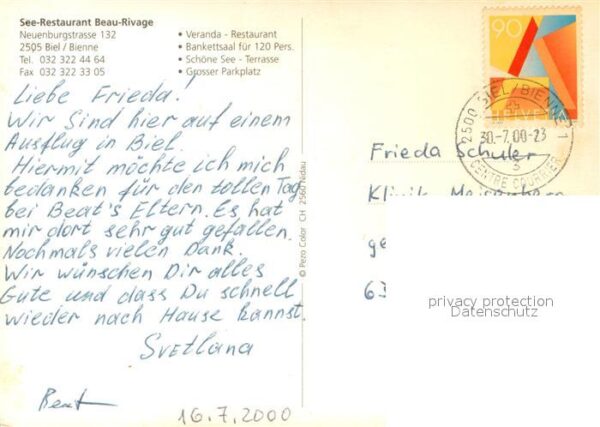 See-Restaurant Beau-Rivage
Neuenburgstrasse 132
2505 Biel / Bienne
Tel. 032 322 44 64
Fax 032 322 33 05
• Veranda - Restaurant
• Bankettsaal für 120 Pers.
• Schöne See - Terrasse
• Grosser Parkplatz
Liebe Frieda!
Wir Sind hier auf einem
Ausflug in Biel.
Hiermit möchte ich mich
bedanken für den tollen Tag
bei Beat's Eltern. Es hat
mir dort sehr gut gefallen.
Nochmals vielen Dank.
Wir wünschen Dir alles
Gute und dass Du schnell
wieder nach Hause kannst.
Svetlana
Beat
16.7.2000
© Pezo Color CH 2560 Nidau
90
HELVETIA
2500 BIEL/BIENNE 1
30.-7.00-23
CENTRE COURRIER
Frieda Schuler
Klinik
63
privacy protection
Datenschutz